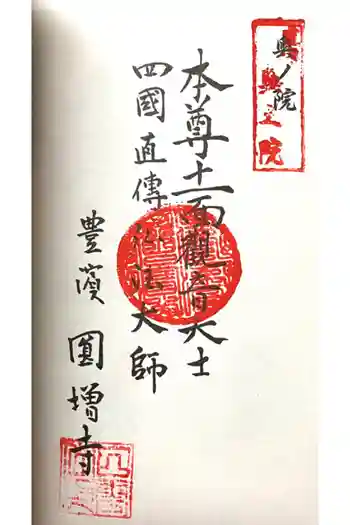 奥ノ院
奥之院
本尊十一面觀音大士
四國直傳弘法大師
豊濱
圓増寺